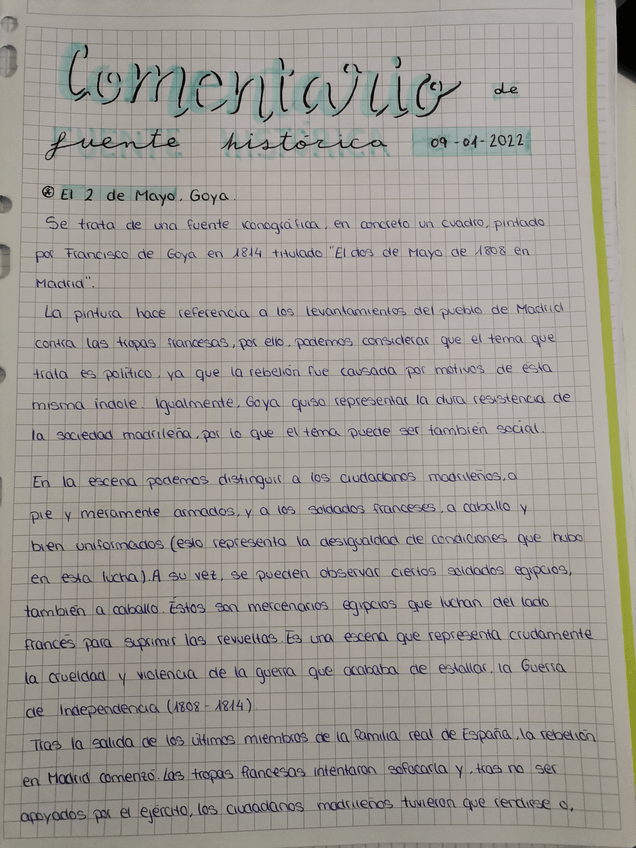 Comentario de
fuente histórica 09-01-2022
⊛ El 2 de Mayo, Goya.
Se trata de una fuente iconográfica, en concreto un cuadro, pintado
por Francisco de Goya en 1814 titulado "El dos de Mayo de 1808 en
Madrid".
La pintura hace referencia a los levantamientos del pueblo de Madrid
contra las tropas francesas, por ello, podemos considerar que el tema que
trata es político, ya que la rebelión fue causada por motivos de esta
misma índole. Igualmente, Goya quiso representar la dura resistencia de
la sociedad madrileña, por lo que el tema puede ser también social.
En la escena podemos distinguir a los ciudadanos madrileños, a
pie y meramente armados, y a los soldados franceses, a caballo y
bien uniformados (esto representa la desigualdad de condiciones que hubo
en esta lucha). A su vez, se pueden observar ciertos soldados egipcios,
también a caballo. Éstos son mercenarios egipcios que luchan del lado
francés para suprimir las revueltas. Es una escena que representa crudamente
la crueldad y violencia de la guerra que acababa de estallar, la Guerra
de Independencia (1808-1814)
Tras la salida de los últimos miembros de la familia real de España, la rebelión
en Madrid comenzó. Las tropas francesas intentaron sofocarla y, tras no ser
apoyados por el ejército, los ciudadanos madrileños tuvieron que rendirse o,